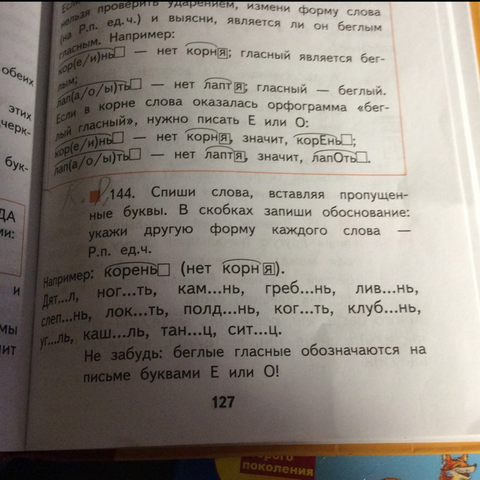 нельзя проверить ударением, измени форму слова
(на Р.п. ед.ч.) и выясни, является ли он беглым
гласным. Например:
кор(е/и)нь — нет корня; гласный является бег-
лым;
лап(а/о/ы)ть — нет лаптя; гласный — беглый.
Если в корне слова оказалась орфограмма «бег-
лый гласный», нужно писать Е или О:
кор(е/и)нь — нет корня, значит, корЕнь;
лап(а/о/ы)ть — нет лаптя, значит, лапОть.
144. Спиши слова, вставляя пропущен-
ные буквы. В скобках запиши обоснование:
укажи другую форму каждого слова —
Р.п. ед.ч.
Например: корень (нет корня).
Дят...л, ног...ть, кам...нь, греб...нь, лив...нь,
слеп...нь, лок...ть, полд...нь, ког...ть, клуб...нь,
уг...ль, каш...ль, тан...ц, сит...ц.
Не забудь: беглые гласные обозначаются на
письме буквами Е или О!
127
обеих
этих
черк-
бук-
ДА
ии:
и
мы
ит
поколения